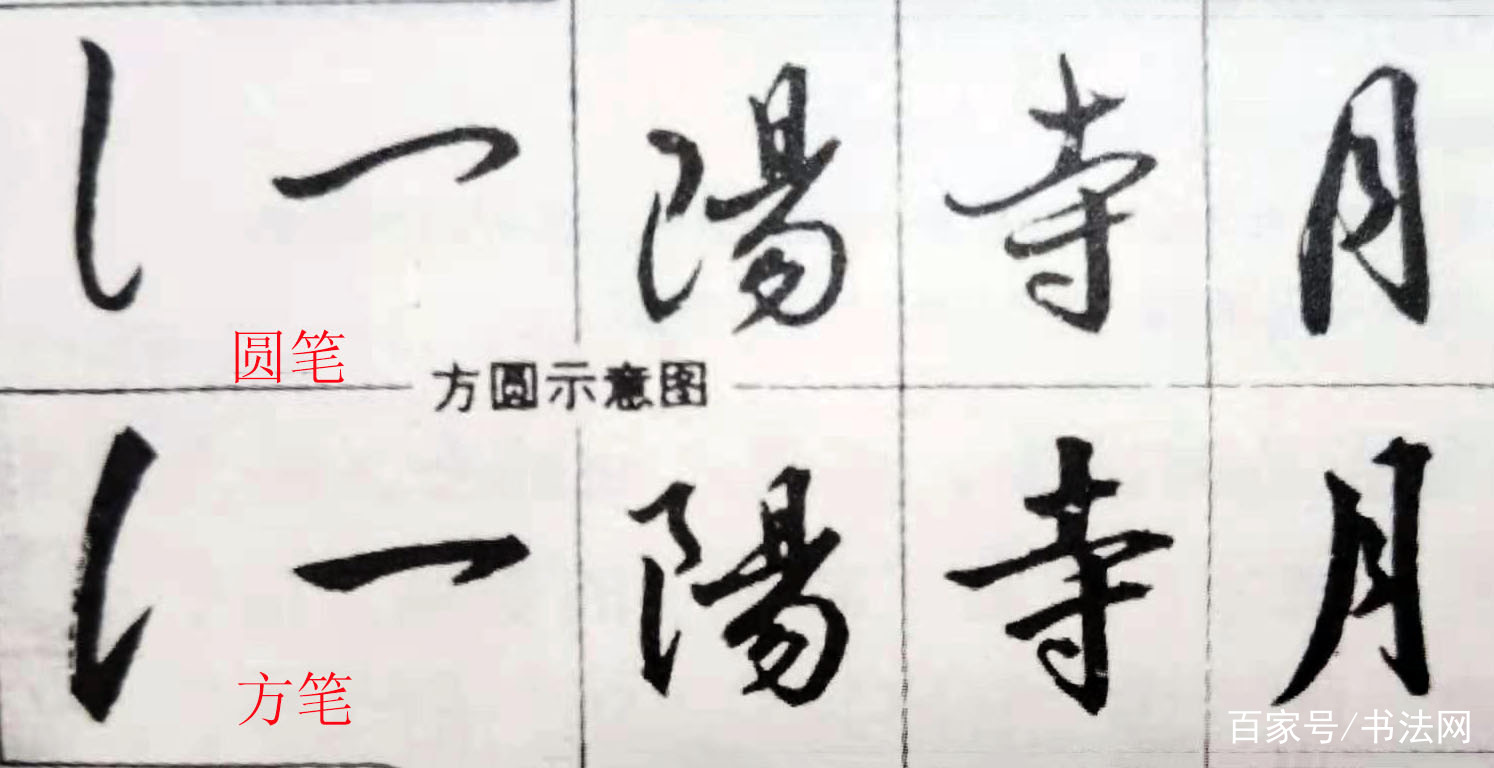 一 陽 寺 月
圆笔
方圓示意图
一 陽 寺 月
方笔
百家号/书法网